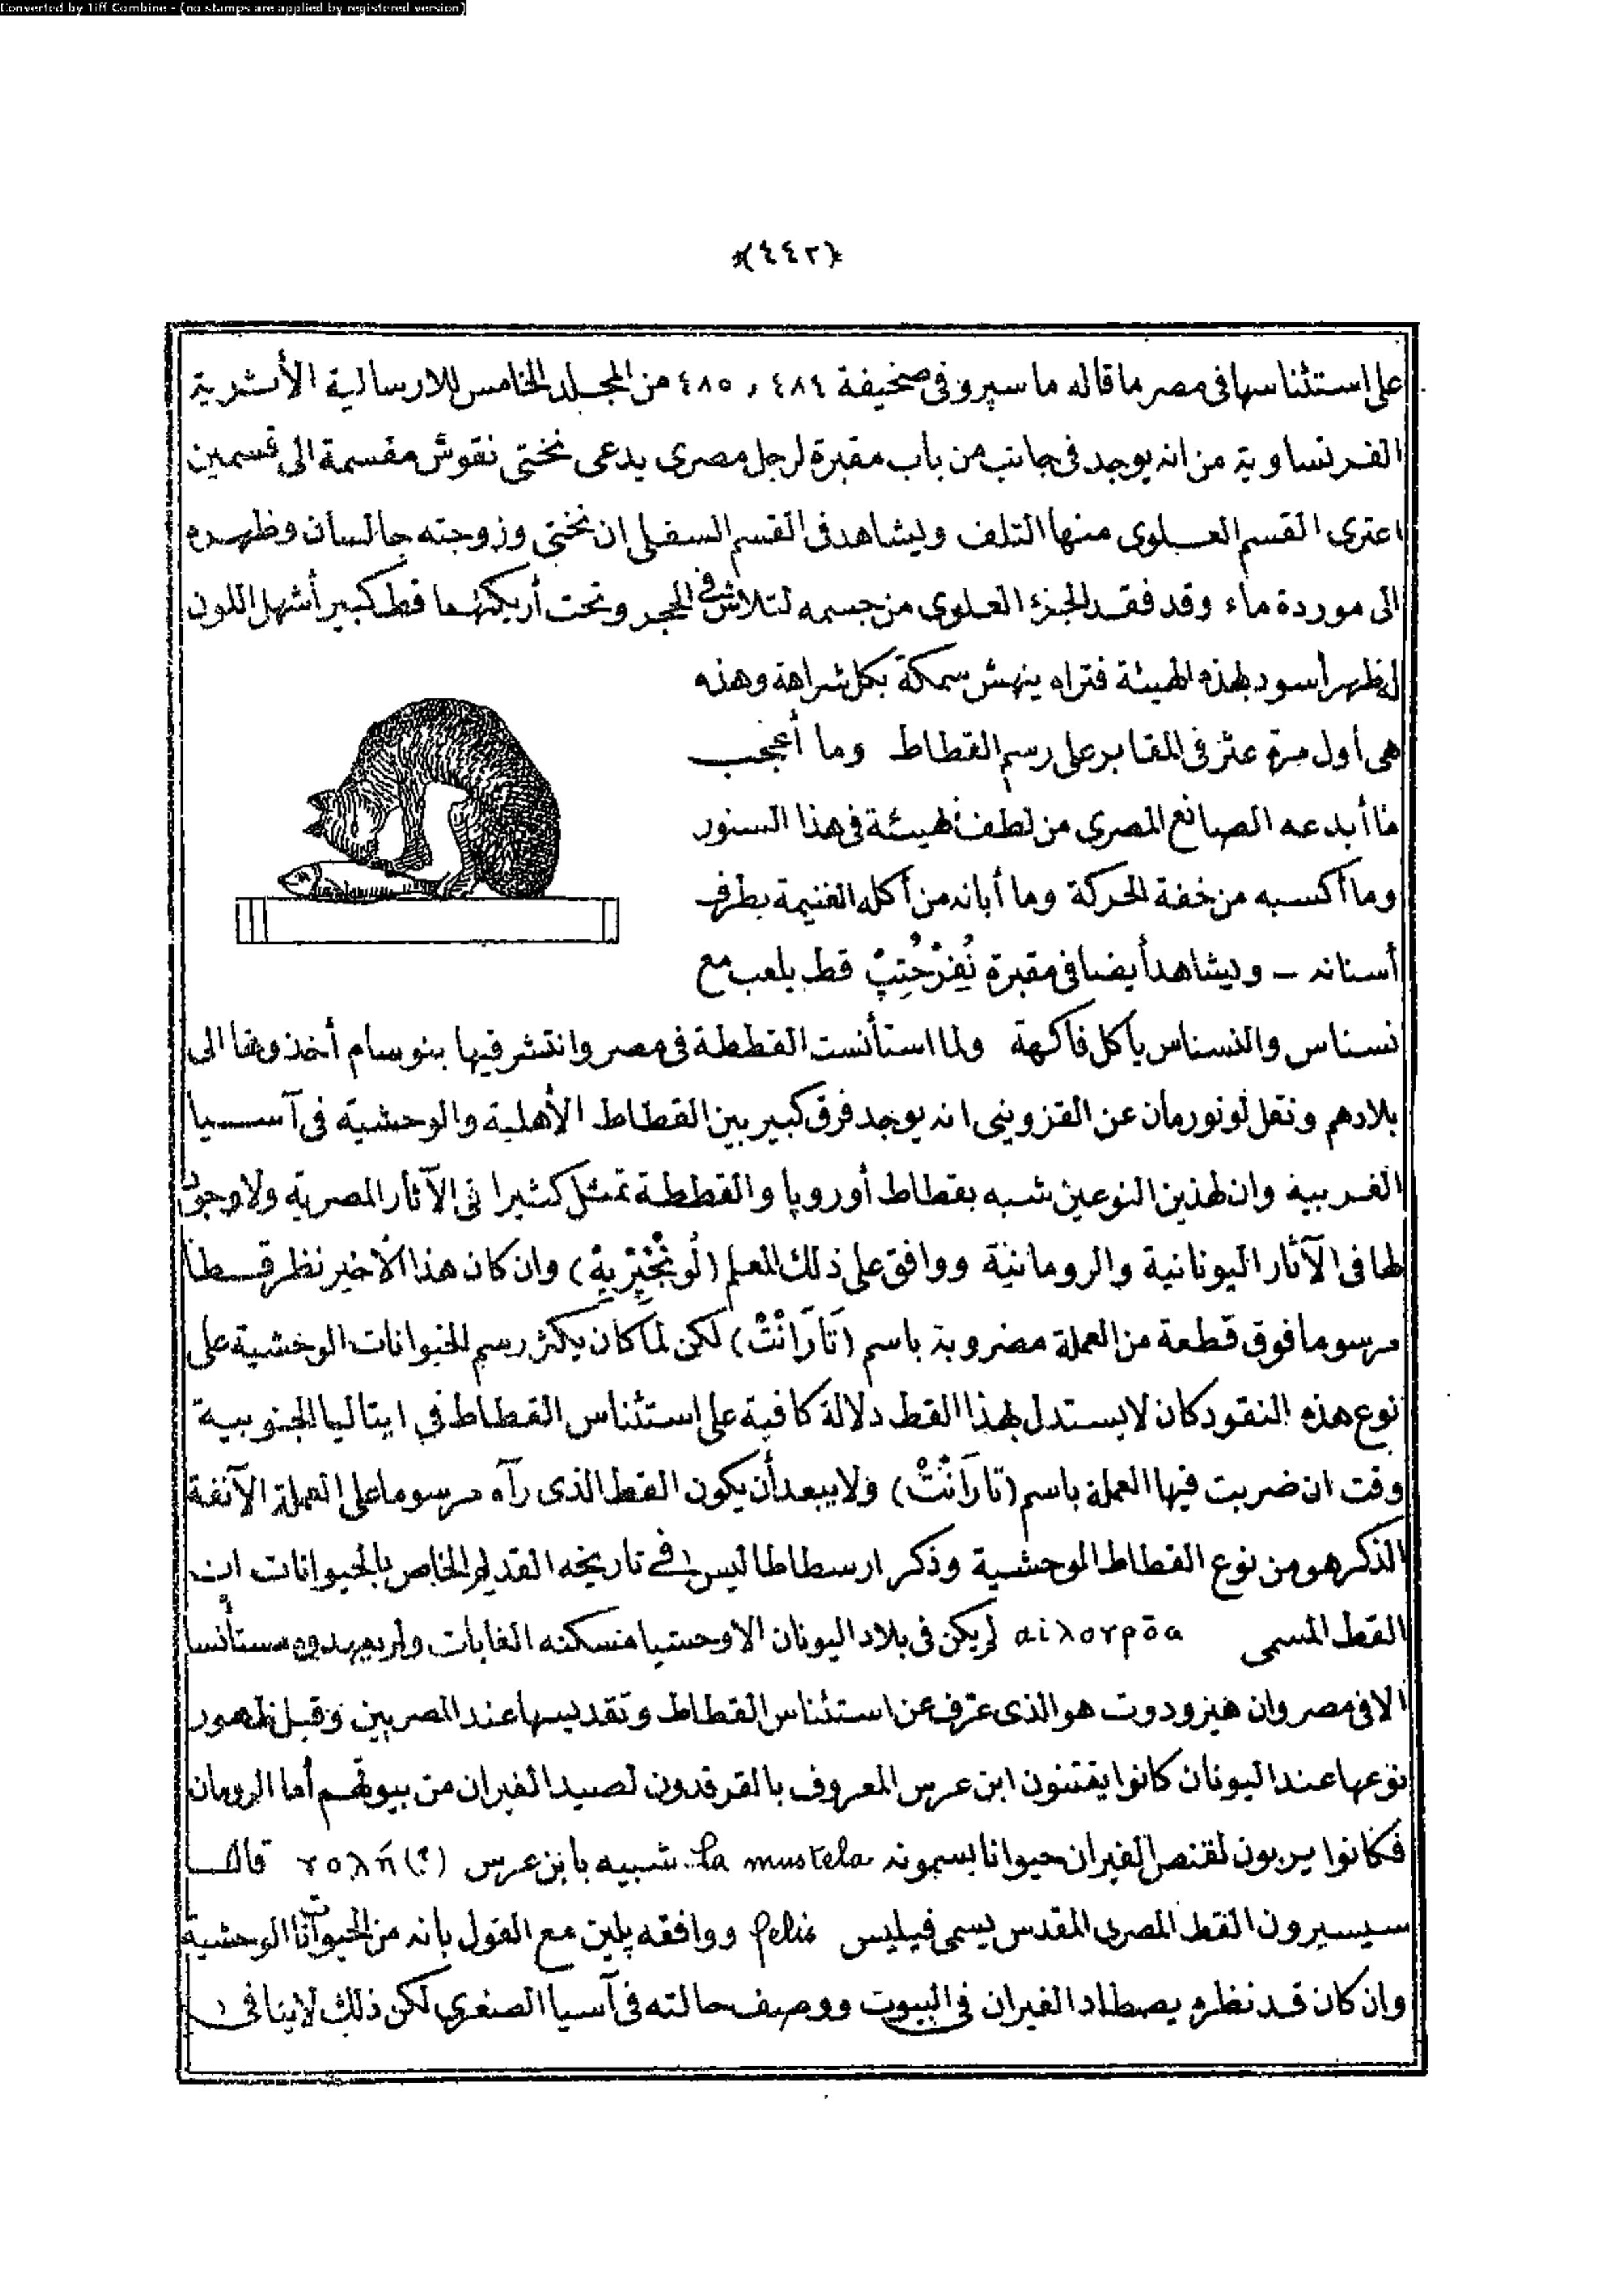 Converted by Tiff Combine - (no stamps are applied by registered version)
*(٤٤٢)*
على استئناسها فى مصر ما قاله ماسپرو فى صحيفة ٤٨٤ و ٤٨٥ من المجلد الخامس للارسالية الأثرية
الفرنساوية من انه يوجد فى جانب من باب مقبرة لرجل مصرى يدعى نختى نقوش مقسمة الى قسمين
اعترى القسم العلوى منها التلف ويشاهد فى القسم السفلى ان نختى وزوجته جالسان وظهره
الى موردة ماء وقد فقد الجزء العلوى من جسمه لتلاش فى الحجر وتحت أريكتهما قط كبير أشهل اللون
الظهر أسود بهذه الهيئة فتراه ينهش سمكة بكل شراهة وهذه
هى أول مرة عثر فى المقابر على رسم القطاط وما أعجب
ما أبدعه الصانع المصرى من لطف الهيئة فى هذا السنور
وما أكسبه من خفة الحركة وما أبانه من أكله الغنيمة بطرف
أسنانه – ويشاهد أيضا فى مقبرة نُفِرْحُتِپْ قط يلعب مع
نسناس والنسناس يأكل فاكهة ولما استأنست القططة فى مصر وانتشر فيها بنوسام أخذوها الى
بلادهم ونقل لونورمان عن القزوينى انه يوجد فرق كبير بين القطاط الأهلية والوحشية فى آسيا
الغربية وان لهذين النوعين شبه بقطاط أوروپا والقططة تمثل كثيرا فى الآثار المصرية ولا وجود
لها فى الآثار اليونانية والرومانية ووافق على ذلك المعلم (لُونْجْپَرْيه) وان كان هذا الأخير نظر قطا
مرسوما فوق قطعة من العملة مضروبة باسم (تَارَانْتْ) لكن لما كان يكثر رسم الحيوانات الوحشية على
نوع هذه النقود كان لا يستدل بهذا القط دلالة كافية على استئناس القطاط في ايتاليا الجنوبية
وقت ان ضربت فيها العملة باسم (تارَانْتْ) ولا يبعد أن يكون القط الذى رآه مرسوما على العملة الآنفة
الذكر هو من نوع القطاط الوحشية وذكر ارسطاطاليس فے تاريخه القديم الخاص بالحيوانات ان
القط المسمى αιλογρōα لم يكن فى بلاد اليونان الا وحشيا مسكنه الغابات ولم يعهدوه مستأنسا
الا فى مصر وان هيرودوت هو الذى عرّف عن استئناس القطاط وتقديسها عند المصريين وقبل ظهور
نوعها عند اليونان كانوا يقتنون ابن عرس المعروف بالقرقدون لصيد الفيران من بيوتهم أما الرومان
فكانوا يربون لقنص الفيران حيوانا يسمونه la mustela شبيه بابن عرس (؟) γολή قال
سيسيرون القط المصرى المقدس يسمى فيليس felis ووافقه پلين مع القول بانه من الحيوانات الوحشية
وان كان قد نظره يصطاد الفيران فى البيوت ووصف حالته فى آسيا الصغرى لكن ذلك لا ينافى